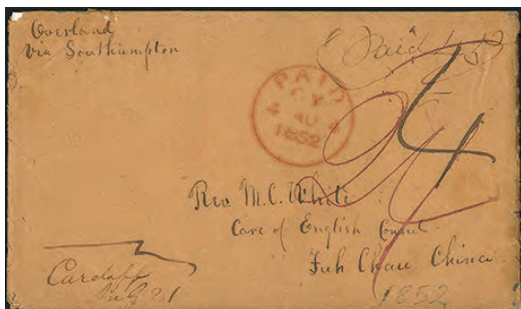 Overland
Via Southampton
Paid
PAID
CY
4 AU 4
1852
4
Rev M.C. White
Care of English Consul
Fuh Chau China
July 21
1852